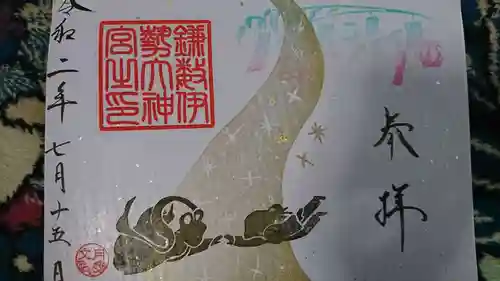 参拝
鎌数伊
勢大神
宮之印
令和二年七月十五日